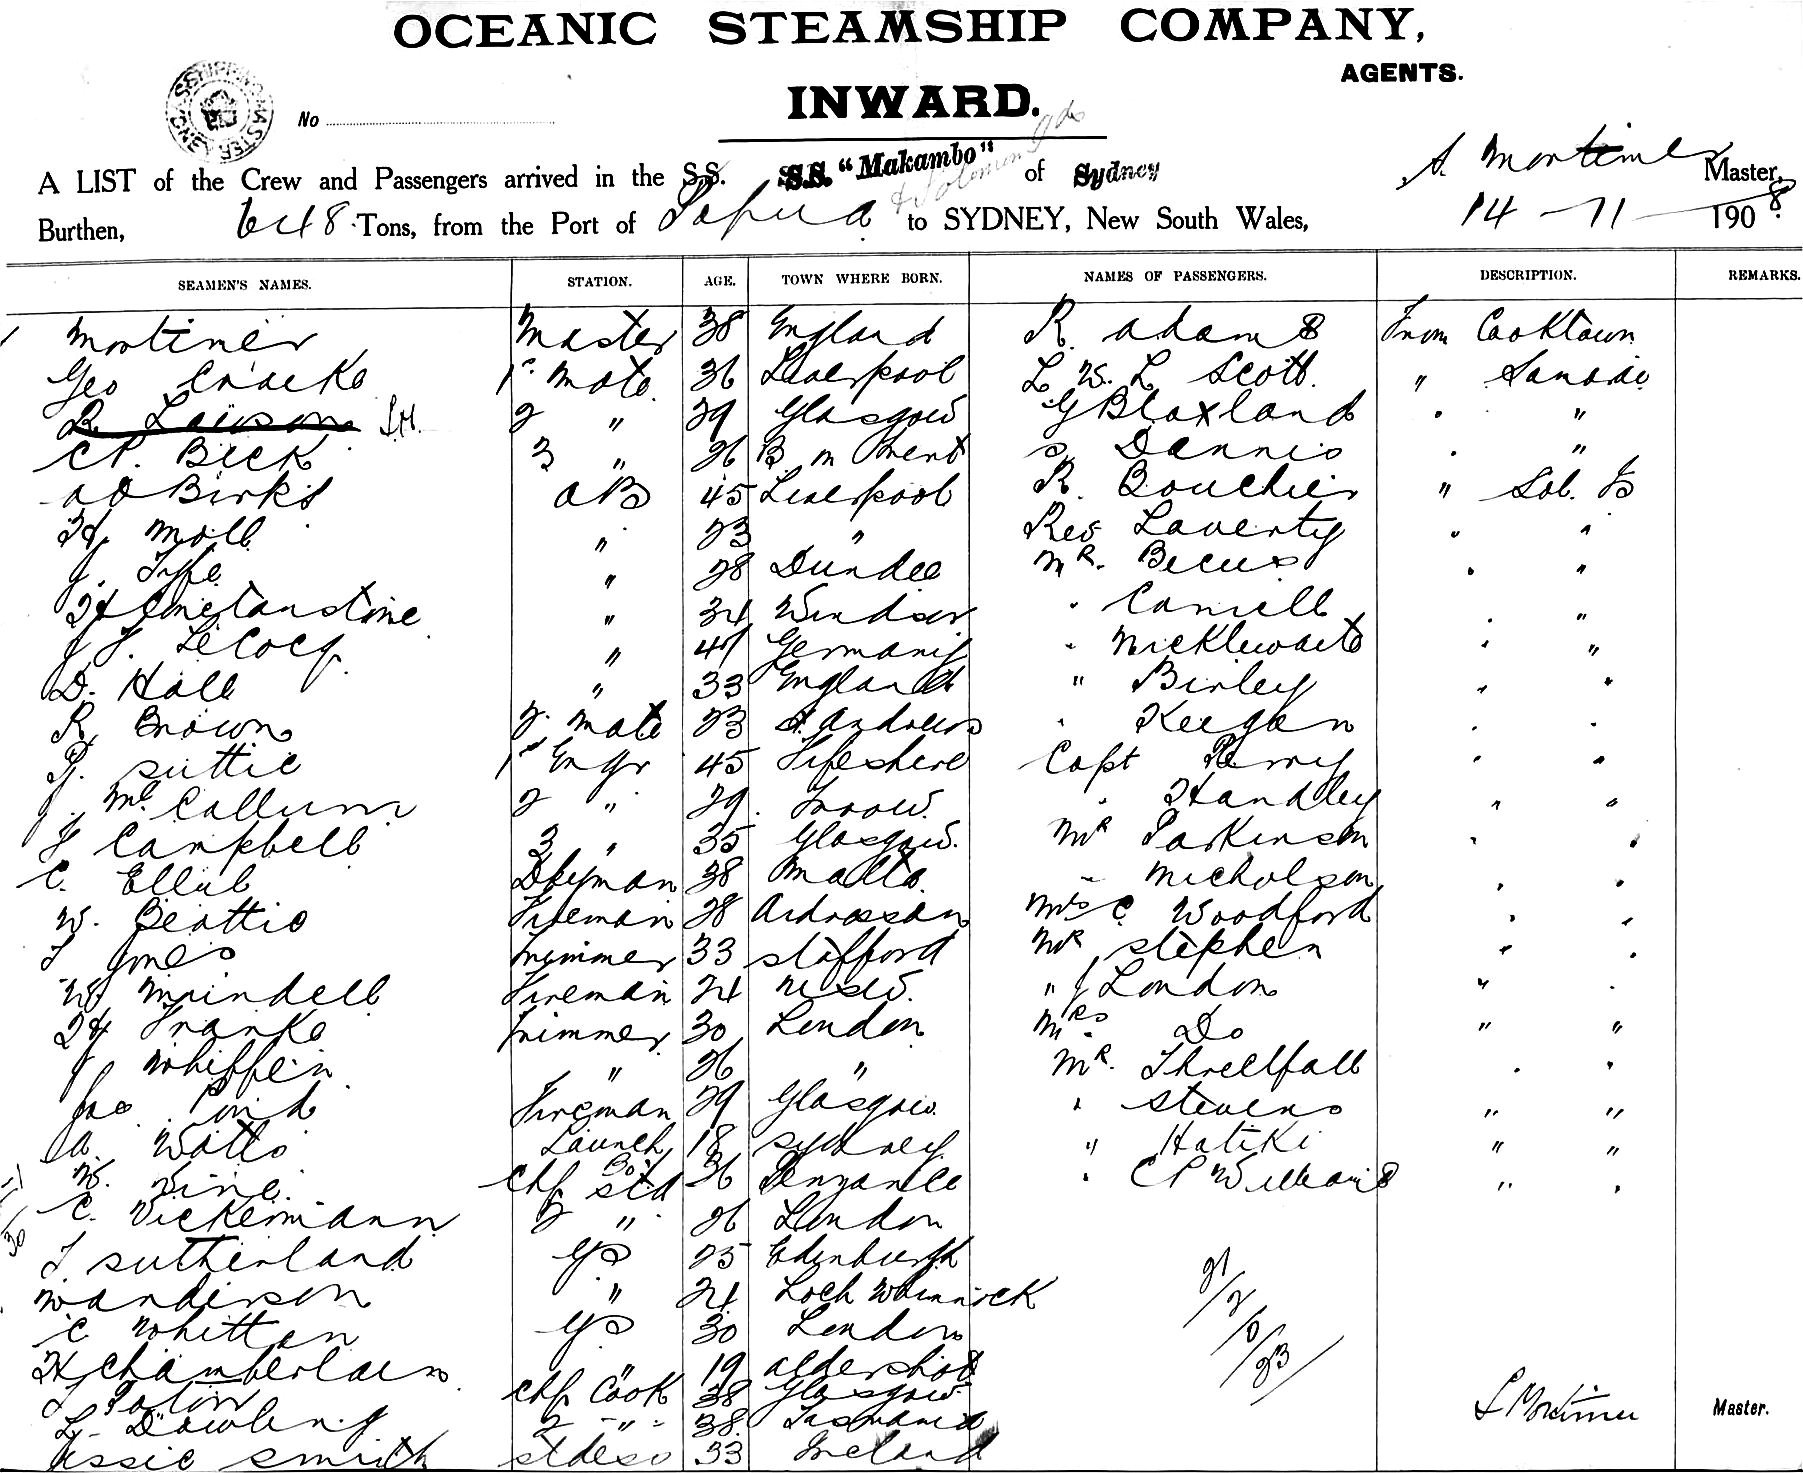 OCEANIC STEAMSHIP COMPANY,
AGENTS.
INWARD.
No
A LIST of the Crew and Passengers arrived in the S.S. S.S. "Makambo" of Sydney S. Mortimer Master,
Burthen, 648 Tons, from the Port of Papua & Solomon Ids to SYDNEY, New South Wales, 14 - 11 - 1908
SEAMEN'S NAMES. STATION. AGE. TOWN WHERE BORN. NAMES OF PASSENGERS. DESCRIPTION. REMARKS.
Mortimer Master 38 England R. Adams From Cooktown
Geo Cracke 1st Mate 36 Liverpool L W. L Scott. " Samarai
R 2 " 29 Glasgow G Blaxland " "
C P. Beck 3 " 26 B. m Ment S. Dennis " "
A O Birks AB 45 Liverpool R. Bouchier " Sol. Is
H. Moll " 23 " Rev Laverty " "
J. Fyfe " 28 Dundee Mr. Becus " "
H " 34 Windsor " "
J F. LeCocq " Germany " "
D. Hall " 33 England " Birley " "
R. Brown 2. Mate 23 St Andrews " Keegan " "
Suttie 1st Engr 45 Fifeshire Capt Perry " "
J. McCallum 2 " 29 " Handley " "
J Campbell 3 " 35 Glasgow. Mr Parkinson " "
C. Ellul Dkyman 38 Malta. " Nicholson " "
W. Beattie Fireman 28 Ardrossan Mrs C Woodford " "
T Jones Trimmer 33 Stafford Mr Stephen " "
W Mundell Fireman 24 N.S.W. " J London " "
H Franke Trimmer 30 London Mrs. Do " "
J Whiffen " 26 " Mr. Threllfall " "
Jas. Fireman 29 Glasgow. " Stevens " "
A. Watts Launch Boy 18 Sydney. " Hatiki " "
W. Vine. Chf Std 36 Penzance " C P Williams " "
C. Vickermann 2 " 26 London
T. Sutherland GS 25 Edinburgh
W Anderson " 24
C Whitten GS 30 London
H Chamberlain " 19 Aldershot
T Paton Chf Cook 38 Glasgow
L. Dowling 2 - " - 38. Tasmania S Mortimer Master.
Jessie Smith Stdess 33 Ireland